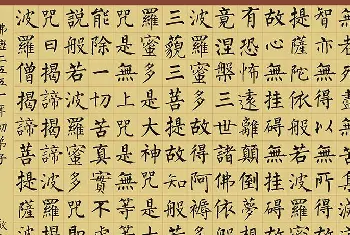 智亦無得以無所得
提薩埵依般若波羅
故心無挂礙無挂礙
有恐怖遠離顛倒夢想
竟涅槃三世諸佛依般
波羅蜜多故得阿耨多
三藐三菩提故知般
羅蜜多是大神咒是大
咒是無上咒是無等等
能除一切苦真實不虛
說般若波羅蜜多咒即
咒曰揭諦揭諦波羅揭
波羅僧揭諦菩提薩婆
佛曆二五五年初弟子